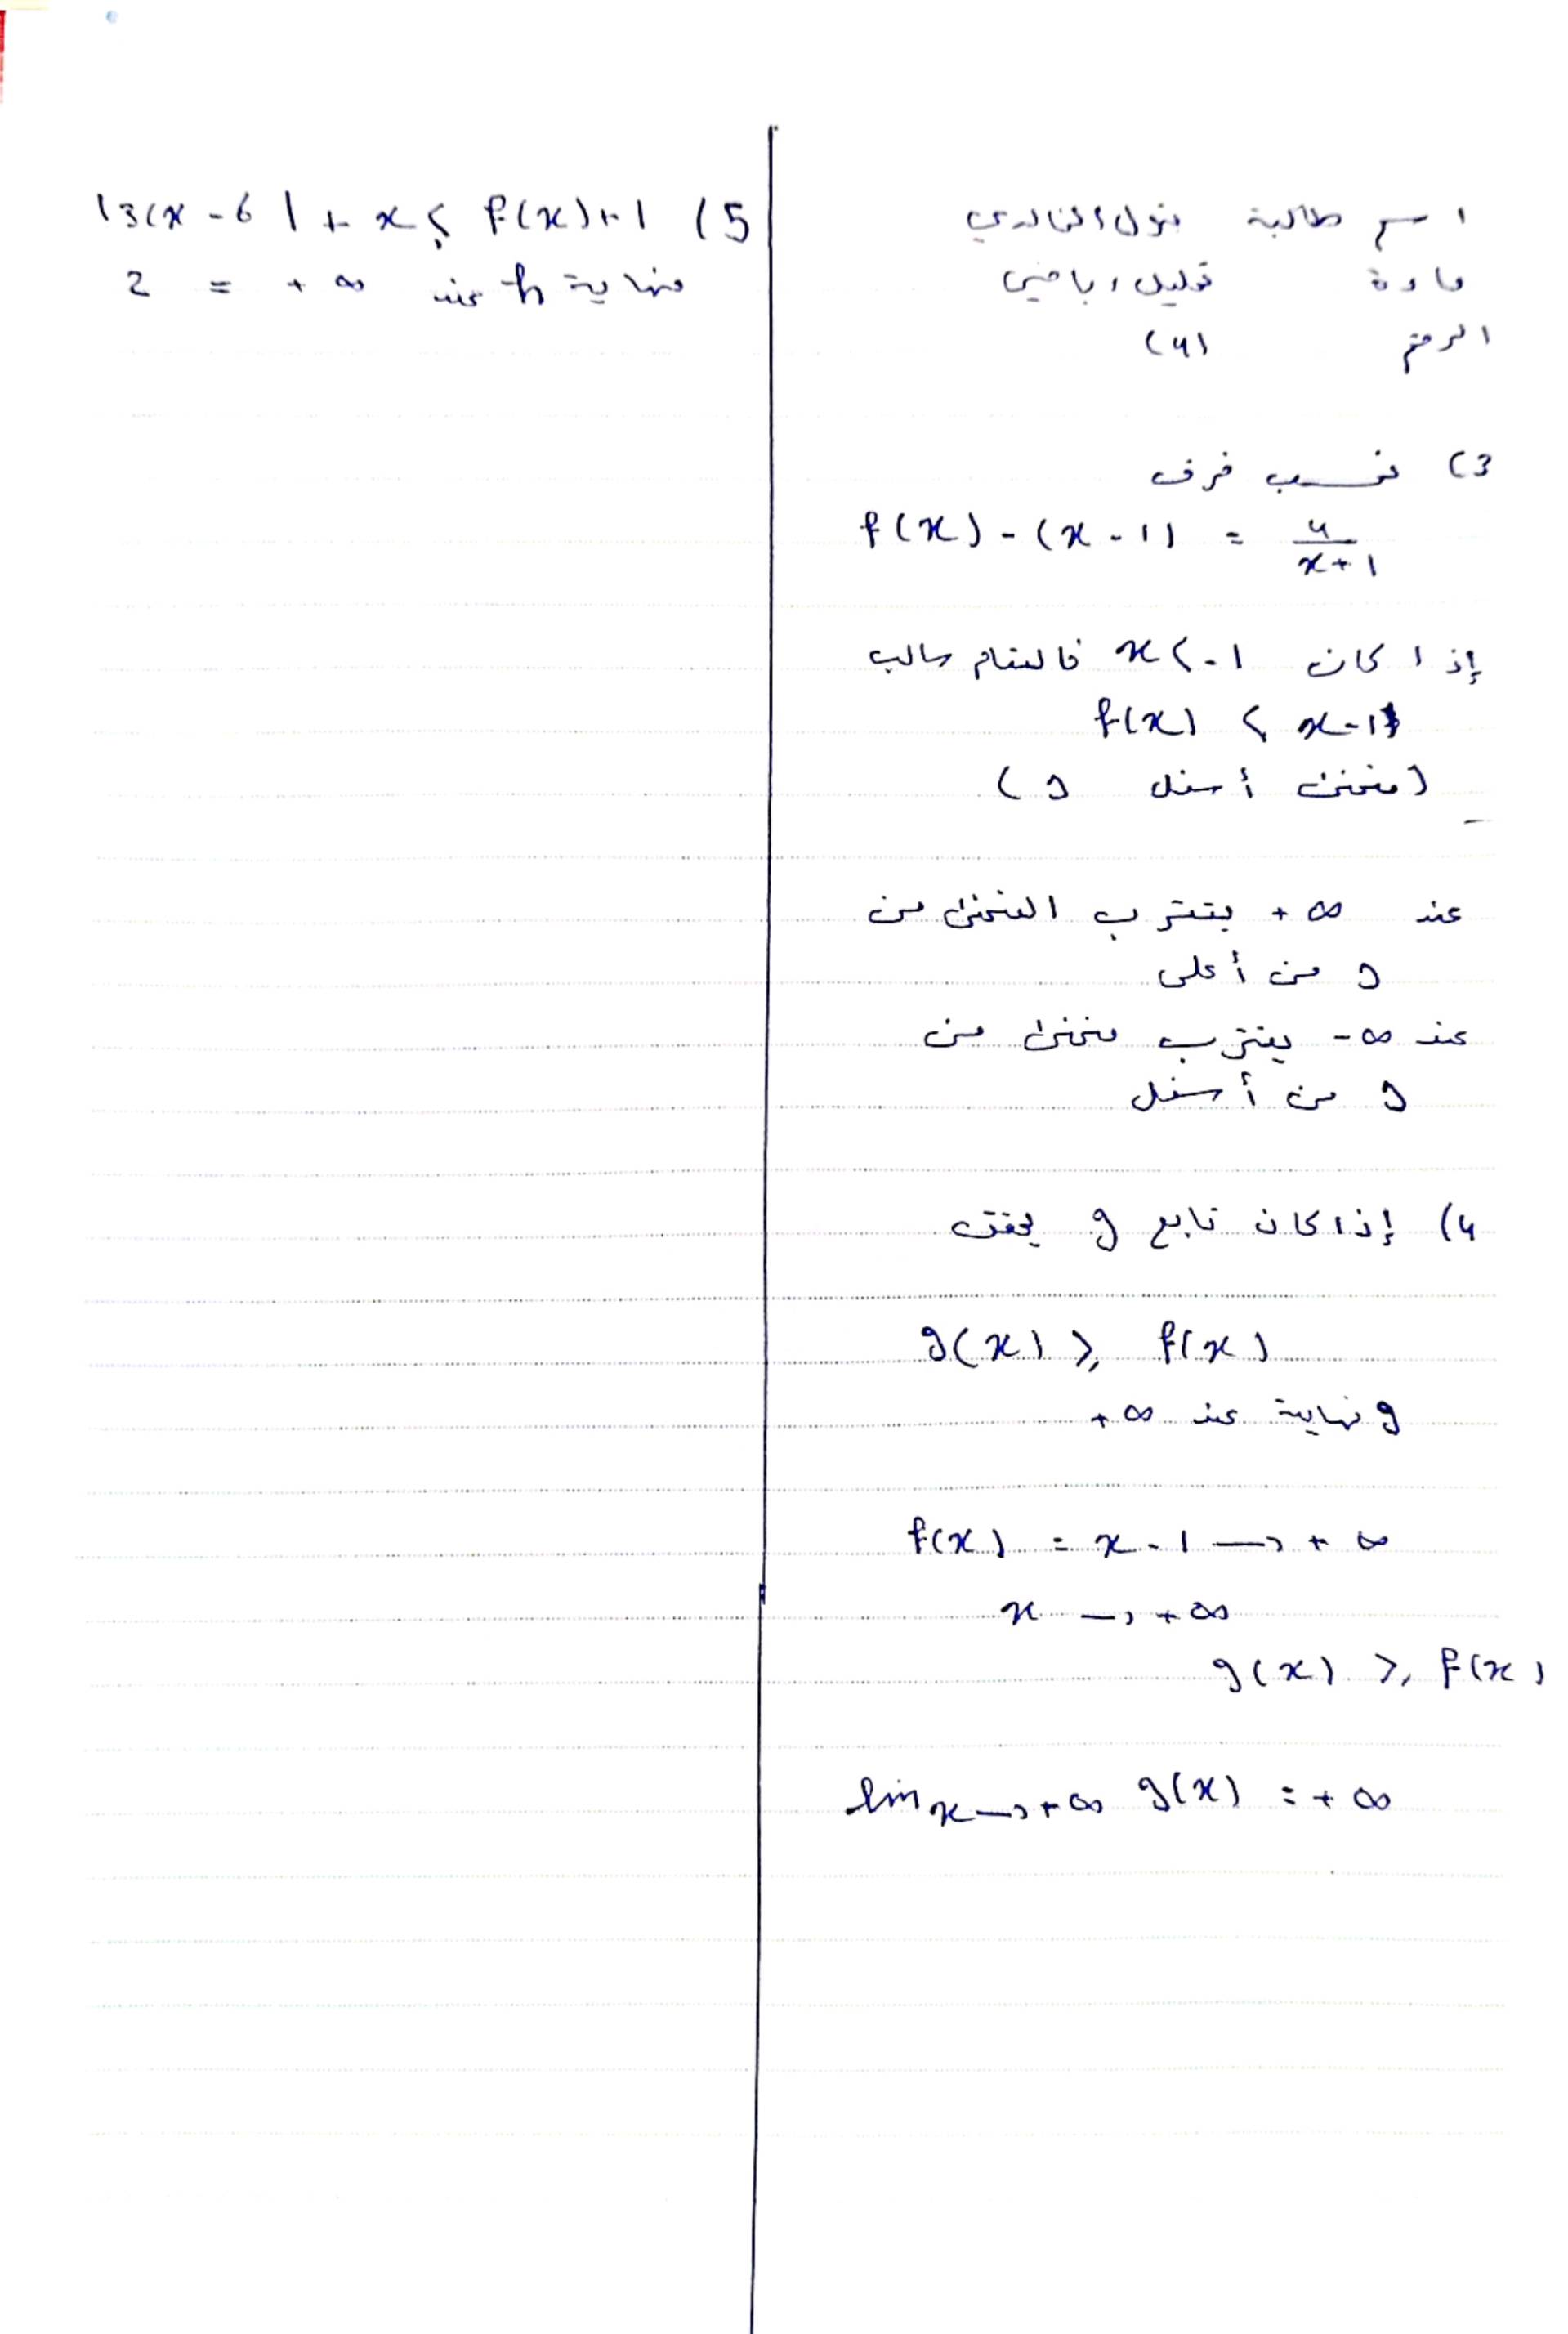 اسم طالبة بتول الخالدي
مادة تحليل رياضي
الرقم (4)
3) نحسب فرق
f(x) - (x - 1) = 4/(x+1)
إذا كان x < -1 فالمقام سالب
f(x) < x-1
(منحنى أسفل d)
عند +∞ يقترب المنحنى من
d من أعلى
عند -∞ يقترب منحنى من
d من أسفل
4) إذا كان تابع g يحقق
g(x) ≥ f(x)
g نهاية عند +∞
f(x) = x - 1 → +∞
x → +∞
g(x) ≥ f(x)
lim x→+∞ g(x) = +∞
5) f(x)+1
نهاية h عند +∞ = 2